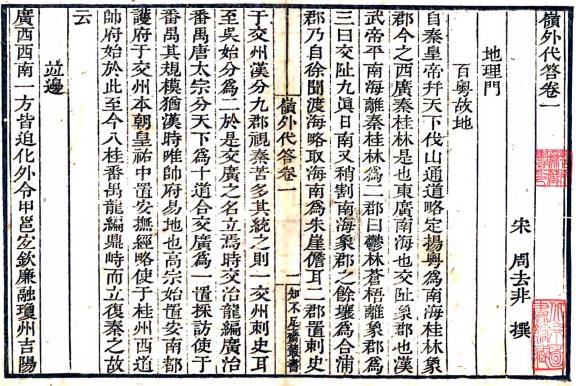 嶺外代答卷一
宋 周去非 撰
地理門
百粤故地
自秦皇帝幷天下伐山通道略定揚粤爲南海桂林象
郡今之西廣秦桂林是也東廣南海也交趾象郡也漢
武帝平南海離秦桂林爲二郡曰鬱林蒼梧離象郡爲
三曰交趾九眞日南又稍割南海象郡之餘壤爲合浦
郡乃自徐聞渡海略取海南爲朱崖儋耳二郡置刺史
嶺外代答卷一 一 知不足齋叢書
于交州漢分九郡視秦苦多其統之則一交州刺史耳
至吳始分爲二於是交廣之名立焉時交治龍編廣治
番禺唐太宗分天下爲十道合交廣爲一置採訪使于
番禺其規模猶漢時唯帥府易地也高宗始置安南都
護府于交州本朝皇祐中置安撫經略使于桂州西道
帥府始於此至今八桂番禺龍編鼎峙而立復秦之故
云
竝邊
廣西西南一方皆迫化外令甲邕宜欽廉融瓊州吉陽